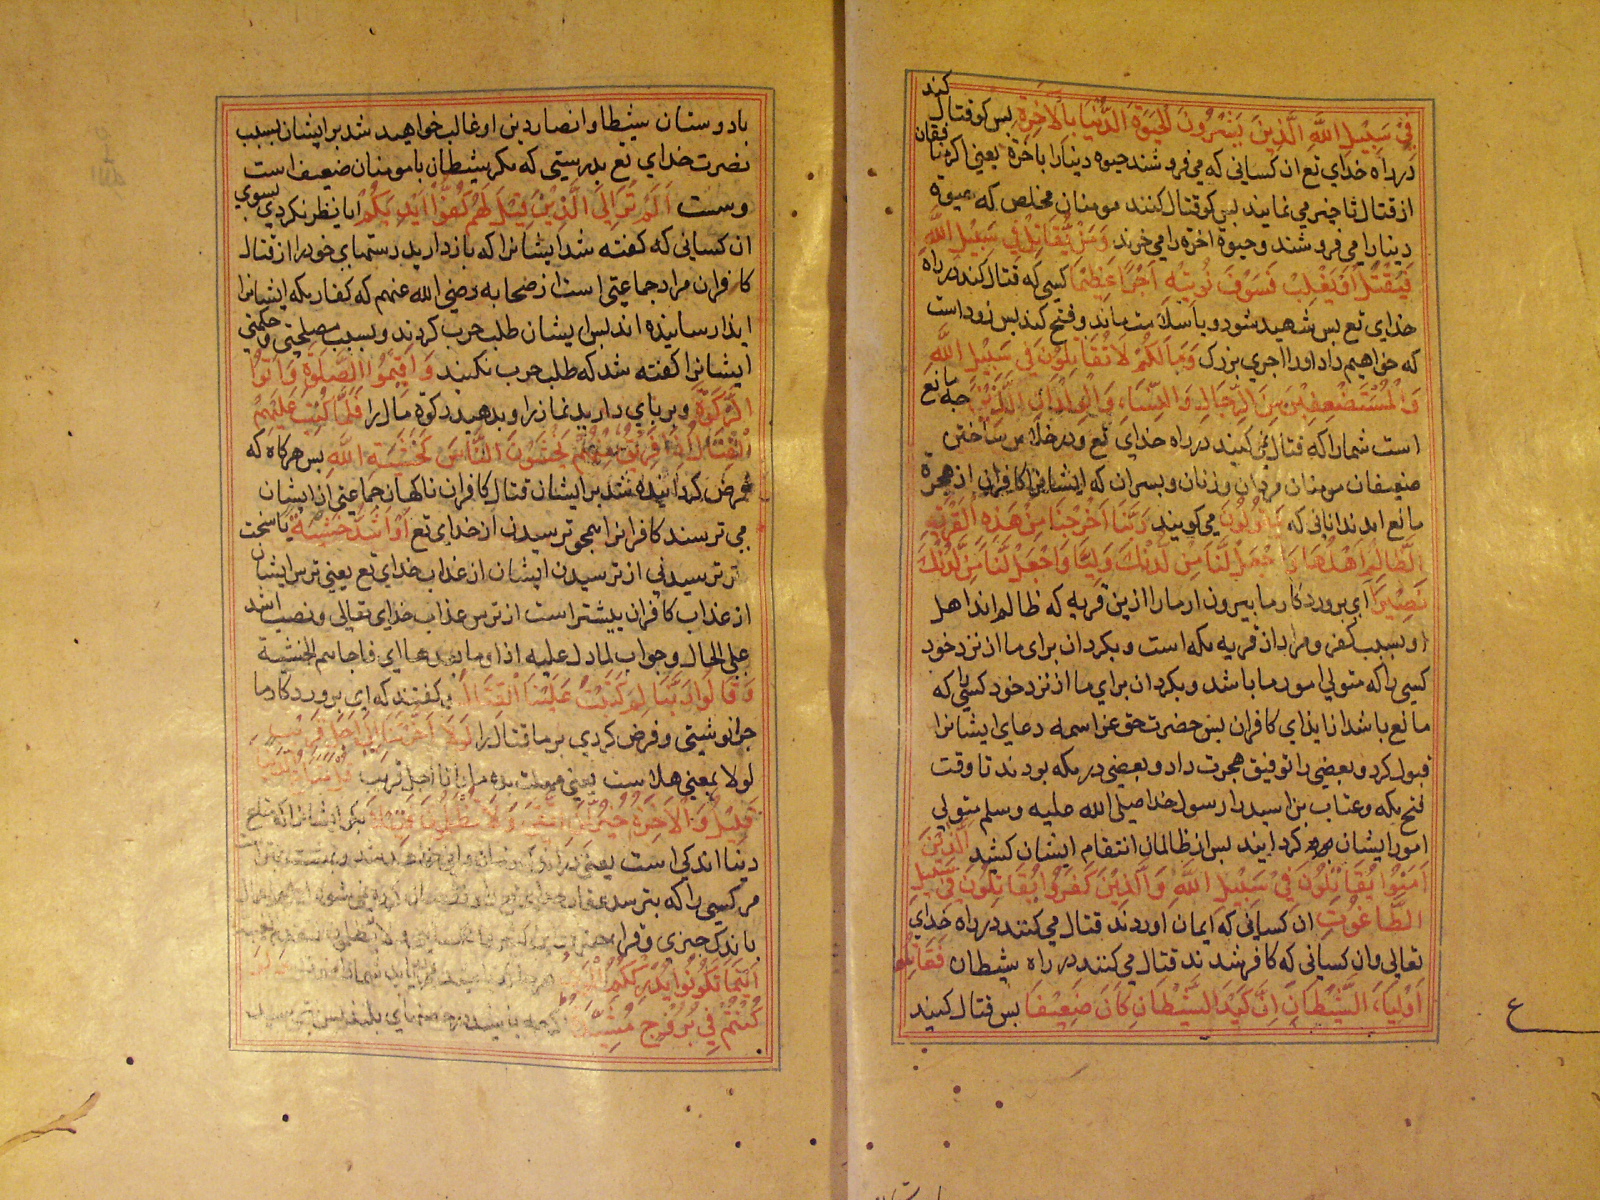 کند
فِيْ سَبِيْلِ اللّٰهِ الَّذِينَ يَشْرُونَ الْحَيٰوةَ الدُّنْيَا بِالْاٰخِرَةِ بس کو قتال
در راه خدای تع ان کسانی که می فروشند حیوه دنیا را باخرة یعنی اکر منافقان
از قتال تاخیر می نمایند بس کو قتال کنند مومنان مخلص که حیوة
دنیا را می فروشند و حیوة اخرة را می خرند وَمَنْ يُّقَاتِلْ فِي سَبِيْلِ اللّٰهِ
فَيُقْتَلْ اَوْ يَغْلِبْ فَسَوْفَ نُؤْتِيْهِ اَجْرًا عَظِيْمًا کسی که قتال کند در راه
خدای تع بس شهید شود و یا سلامت ماند و فتح کند بس زود است
که خواهیم داد او را اجری بزرک وَمَا لَكُمْ لَا تُقَاتِلُوْنَ فِي سَبِيْلِ اللّٰهِ
وَالْمُسْتَضْعَفِيْنَ مِنَ الرِّجَالِ وَالنِّسَاءِ وَالْوِلْدَانِ الَّذِيْنَ جه مانع
است شما را که قتال نمی کنید در راه خدای تع و در خلاص ساختن
ضعیفان مومنان مردان و زنان و بسران که ایشانرا کافران از هجرة
مانع امدند انانی که يَقُوْلُوْنَ می کویند رَبَّنَا اَخْرِجْنَا مِنْ هٰذِهِ الْقَرْيَةِ
الظَّالِمِ اَهْلُهَا وَاجْعَلْ لَّنَا مِنْ لَّدُنْكَ وَلِيًّا وَاجْعَلْ لَّنَا مِنْ لَّدُنْكَ
نَصِيْرًا ای بروردکار ما بیرون ار ما را ازین قریه که ظالم اند اهل
او بسبب کفر و مراد از قریه مکه است و بکردان برای ما از نزد خود
کسی را که متولی امور ما باشد و بکردان برای ما از نزد خود کسی را که
مانع باشد از ایذای کافران بس حضرت حق عز اسمه دعای ایشانرا
قبول کرد و بعضی را توفیق هجرت داد و بعضی در مکه بودند تا وقت
فتح مکه و عتاب بن اسید را رسول خدا صلی الله علیه و سلم متولی
امور ایشان کردانید بس از ظالمان انتقام ایشان کشید الَّذِيْنَ
اٰمَنُوْا يُقَاتِلُوْنَ فِيْ سَبِيْلِ اللّٰهِ وَالَّذِيْنَ كَفَرُوْا يُقَاتِلُوْنَ فِيْ سَبِيْلِ
الطَّاغُوْتِ ان کسانی که ایمان اوردند قتال می کنند در راه خدای
تعالی و ان کسانی که کافر شدند قتال می کنند در راه شیطان فَقَاتِلُوْا
اَوْلِيَاءَ الشَّيْطَانِ اِنَّ كَيْدَ الشَّيْطَانِ كَانَ ضَعِيْفًا بس قتال کنید
با دوستان شیطان و انصار دین او غالب خواهید شد بر ایشان بسبب
نصرت خدای تع بدرستی که مکر شیطان با مومنان ضعیف است
و سست اَلَمْ تَرَ اِلَى الَّذِيْنَ قِيْلَ لَهُمْ كُفُّوْا اَيْدِيَكُمْ ایا نظر نکردی بسوی
ان کسانی که کفته شد ایشانرا که باز دارید دستهای خود را از قتال
کافران مراد جماعتی است از صحابه رضی الله عنهم که کفار مکه ایشانرا
ایذا رسانیده اند بس ایشان طلب حرب کردند و بسبب مصلحتی و حکمتی
ایشانرا کفته شد که طلب حرب نکنید وَاَقِيْمُوا الصَّلٰوةَ وَاٰتُوا
الزَّكٰوةَ و بر بای دارید نماز را و بدهید زکوة مال را فَلَمَّا كُتِبَ عَلَيْهِمُ
الْقِتَالُ اِذَا فَرِيْقٌ مِنْهُمْ يَخْشَوْنَ النَّاسَ كَخَشْيَةِ اللّٰهِ بس هرکاه که
فرض کردانیده شد بر ایشان قتال کافران ناکهان جماعتی از ایشان
می ترسند کافرانرا همجو ترسیدن از خدای تع اَوْ اَشَدَّ خَشْيَةً یا سخت
تر ترسیدنی از ترسیدن ایشان از عذاب خدای تع یعنی ترس ایشان
از عذاب کافران بیشتر است از ترس عذاب خدای تعالی و نصب اشد
علی الحال و جواب لما دل علیه اذا و ما بعدها ای فاجاهم الخشیة
وَقَالُوْا رَبَّنَا لِمَ كَتَبْتَ عَلَيْنَا الْقِتَالَ کفتند که ای بروردکار ما
جرا نوشتی و فرض کردی بر ما قتال را لَوْلَا اَخَّرْتَنَا اِلٰى اَجَلٍ قَرِيْبٍ
لولا بمعنی هلا است یعنی مهلت بده ما را تا اجل قریب قُلْ مَتَاعُ الدُّنْيَا
قَلِيْلٌ وَالْاٰخِرَةُ خَيْرٌ لِّمَنِ اتَّقٰى وَلَا تُظْلَمُوْنَ فَتِيْلًا بکو ایشانرا که متاع
دنیا اندکی است یعنی
مر کسی را که بترسد
باندک جیزی
اَيْنَمَا تَكُوْنُوْا يُدْرِكْكُمُ الْمَوْتُ
كُنْتُمْ فِيْ بُرُوْجٍ مُشَيَّدَةٍ